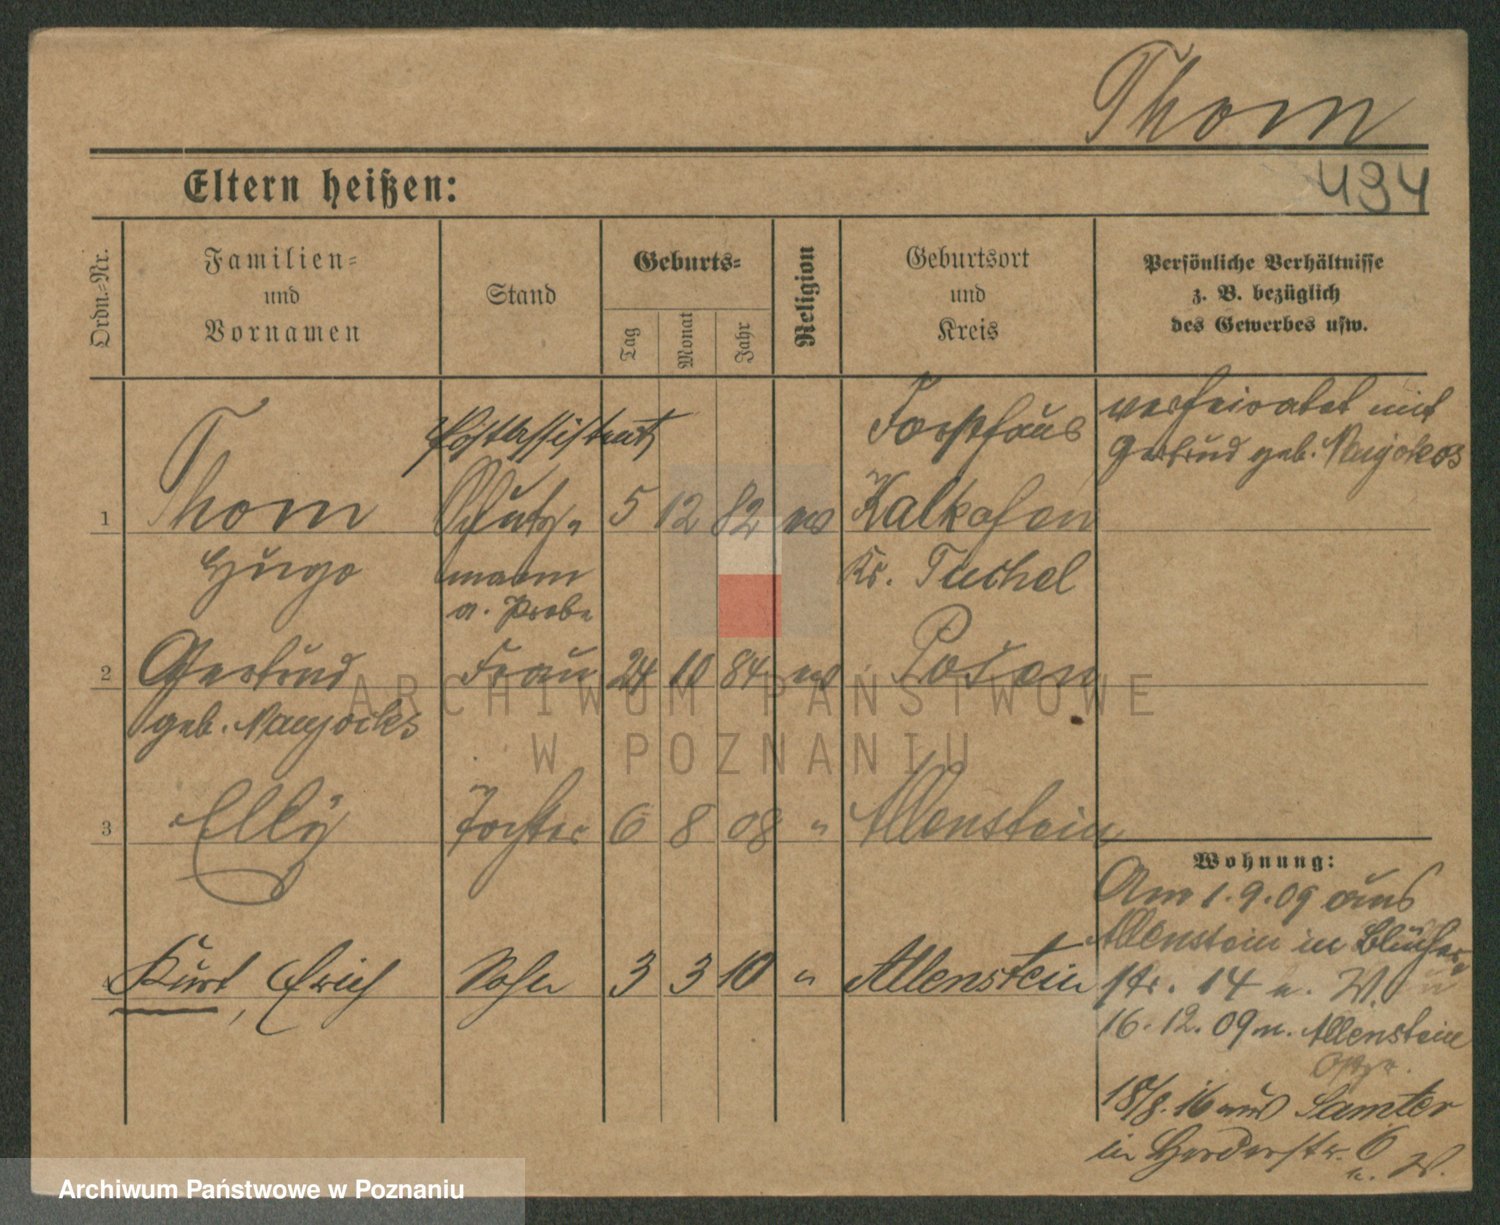 Thom
494
Eltern heißen:
Ordn.-Nr.
Familien-
und
Vornamen
Stand
Geburts-
Tag
Monat
Jahr
Religion
Geburtsort
und
Kreis
Persönliche Verhältnisse
z. B. bezüglich
des Gewerbes usw.
Postassistent
Forsthaus
verheiratet mit
Gertrud geb. Naujocks
1 Thom Schutz- 5 12 82 ev Kalkofen
Hugo mann Kr. Tuchel
a. Probe
2 Gertrud Frau 24 10 84 ev Posen
geb. Naujocks
3 Elly Tochter 6 8 08 " Allenstein
Wohnung:
Am 1.9.09 aus
Allenstein in Blücher-
4 Kurt, Erich Sohn 3 3 10 " Allenstein
str. 14 e. W.
16.12.09 n. Allenstein
Ostpr.
18/8.16 aus Samter
in Herderstr. 6
e. W.
ARCHIWUM PAŃSTWOWE
W POZNANIU
Archiwum Państwowe w Poznaniu